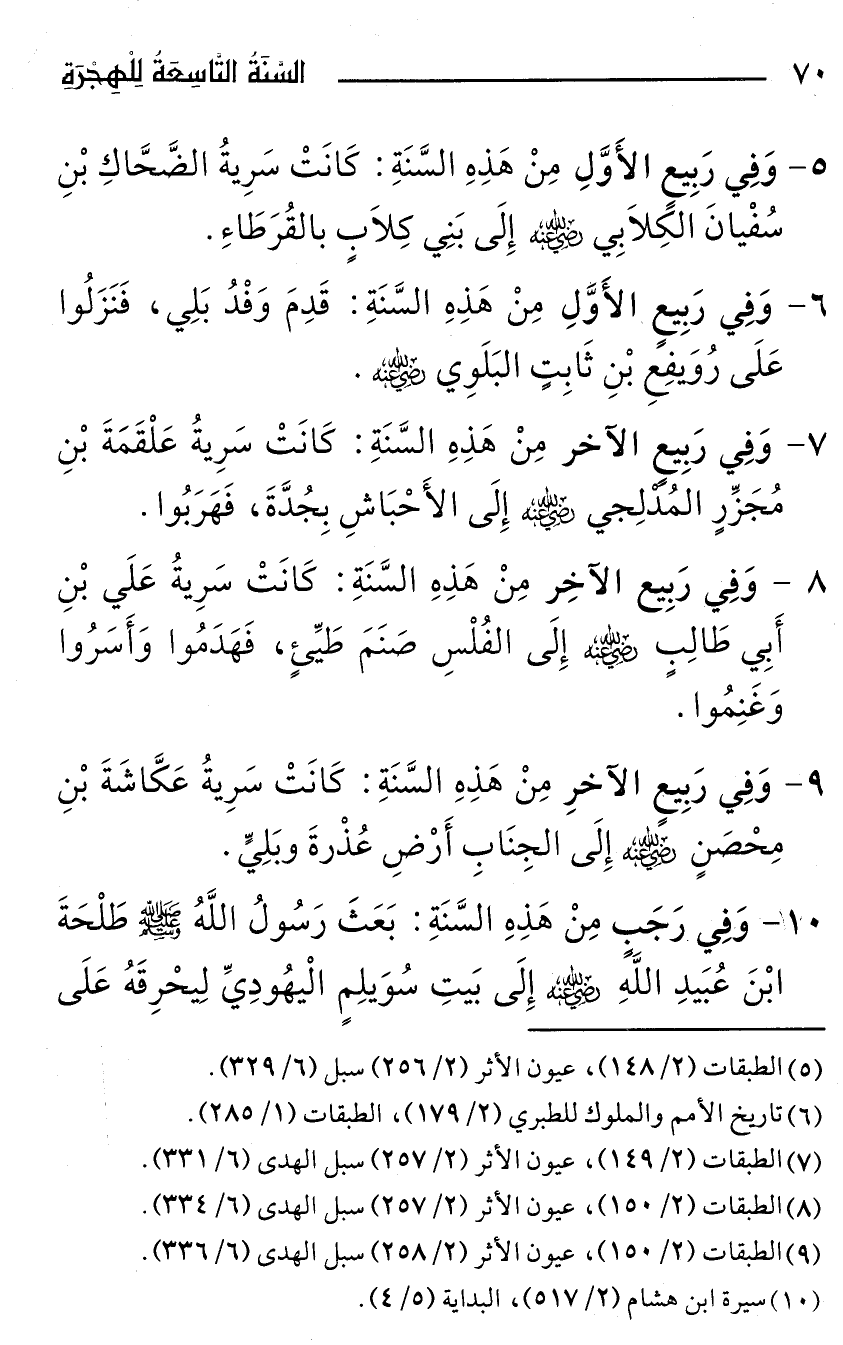 ٧٠ السَّنَةُ التَّاسِعَةُ لِلْهِجْرَةِ
٥- وَفِي رَبِيعٍ الأَوَّلِ مِنْ هَذِهِ السَّنَةِ: كَانَتْ سَرِيةُ الضَّحَّاكِ بْنِ
سُفْيانَ الكِلَابِي رضي الله عنه إِلَى بَنِي كِلاَبٍ بالقُرَطَاءِ.
٦- وَفِي رَبِيعٍ الأَوَّلِ مِنْ هَذِهِ السَّنَةِ: قَدِمَ وَفْدُ بَلِي، فَنَزَلُوا
عَلَى رُوَيفِعِ بْنِ ثَابِتٍ البَلَوِي رضي الله عنه.
٧- وَفِي رَبِيعٍ الآخر مِنْ هَذِهِ السَّنَةِ: كَانَتْ سَرِيةُ عَلْقَمَةَ بْنِ
مُجَزِّرٍ المُدْلِجي رضي الله عنه إِلَى الأَحْبَاشِ بِجُدَّةَ، فَهَرَبُوا.
٨ - وَفِي رَبِيع الآخِر مِنْ هَذِهِ السَّنَةِ: كَانَتْ سَرِيةُ عَلَي بْنِ
أَبِي طَالِبٍ رضي الله عنه إِلَى الفُلْسِ صَنَمَ طَيِّئٍ، فَهَدَمُوا وَأَسَرُوا
وَغَنِمُوا.
٩- وَفِي رَبِيعٍ الآخرِ مِنْ هَذِهِ السَّنَةِ: كَانَتْ سَرِيةُ عَكَّاشَةَ بْنِ
مِحْصَنٍ رضي الله عنه إِلَى الجِنَابِ أَرْضِ عُذْرةَ وبَلِيٍّ.
١٠- وَفِي رَجَبٍ مِنْ هَذِهِ السَّنَةِ: بَعَثَ رَسُولُ اللَّهُ ﷺ طَلْحَةَ
ابْنَ عُبَيدِ اللَّهِ رضي الله عنه إِلَى بَيتِ سُوَيلِمٍ الْيهُودِيِّ لِيحْرِقَهُ عَلَى
(٥) الطبقات (٢/ ١٤٨)، عيون الأثر (٢/ ٢٥٦) سبل (٦/ ٣٢٩).
(٦) تاريخ الأمم والملوك للطبري (٢/ ١٧٩)، الطبقات (١/ ٢٨٥).
(٧) الطبقات (٢/ ١٤٩)، عيون الأثر (٢/ ٢٥٧) سبل الهدى (٦/ ٣٣١).
(٨) الطبقات (٢/ ١٥٠)، عيون الأثر (٢/ ٢٥٧) سبل الهدى (٦/ ٣٣٤).
(٩) الطبقات (٢/ ١٥٠)، عيون الأثر (٢/ ٢٥٨) سبل الهدى (٦/ ٣٣٦).
(١٠) سيرة ابن هشام (٢/ ٥١٧)، البداية (٥/ ٤).